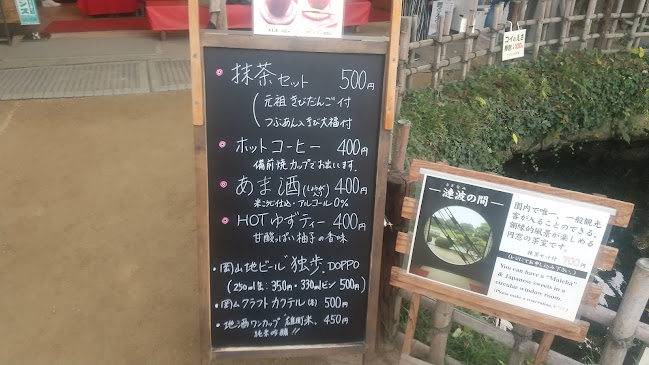 抹茶セット 500円
(元祖きびだんご付
つぶあん入きび大福付
ホットコーヒー 400円
備前焼カップでお出しします。
あま酒(しょうが入り) 400円
米こうじ仕込・アルコール0%
HOTゆずティー 400円
甘酸っぱい柚子の香味
・岡山地ビール"独歩"DOPPO
(250ml缶:350円・330mlビン 500円)
・岡山クラフトカクテル(缶) 500円
・地酒ワンカップ"雄町米" 450円
純米吟醸!!
コイのえさ
100円
さざなみ
漣波の間
国内で唯一、一般観光
客が入ることのできる、
額縁的風景が楽しめる
円窓の茶室です。
抹茶セット付 700円
(レジにてお申し込み下さい。)
You can have a "Matcha"
& Japanese sweets in a
circular window room.